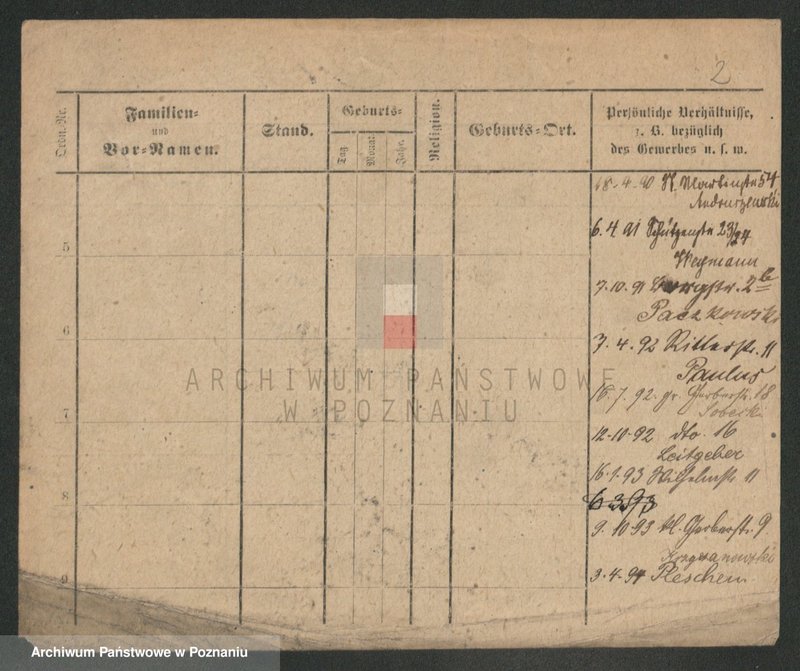 2
Ordn.-Nr.
Familien-
und
Vor-Namen.
Stand.
Geburts-
Tag
Monat
Jahr.
Religion.
Geburts-Ort.
Persönliche Verhältnisse,
z. B. bezüglich
des Gewerbes u. s. w.
18.-4-90 St. Martinstr 54
Andruszewski
5
6. 4 91 Schützenstr 23/24
Wegmann
7.10.91 Bergstr. 2b
Paczkowski
6
7. 4. 92 Ritterstr. 11
Paulus
ARCHIWUM PAŃSTWOWE
W POZNANIU
16.7.92. gr. Gerberstr. 18
Sobecki
7
12-10-92 dto. 16
Leitgeber
16.1.93 Wilhelmstr 11
8
9. 10 93 kl. Gerberstr. 9
9
3.4.94 Pleschen
Archiwum Państwowe w Poznaniu